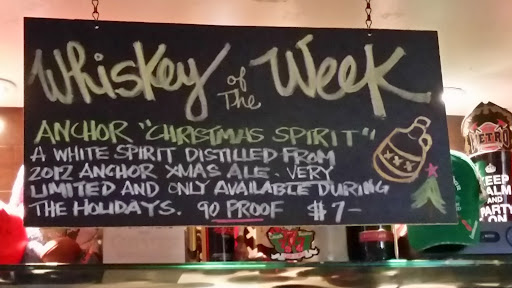 Whiskey of The Week
ANCHOR "CHRISTMAS SPIRIT"
A WHITE SPIRIT DISTILLED FROM
2012 ANCHOR XMAS ALE. VERY
LIMITED AND ONLY AVAILABLE DURING
THE HOLIDAYS. 90 PROOF $7-
XXX
METRO
KEEP
CALM
AND
PARTY
ON